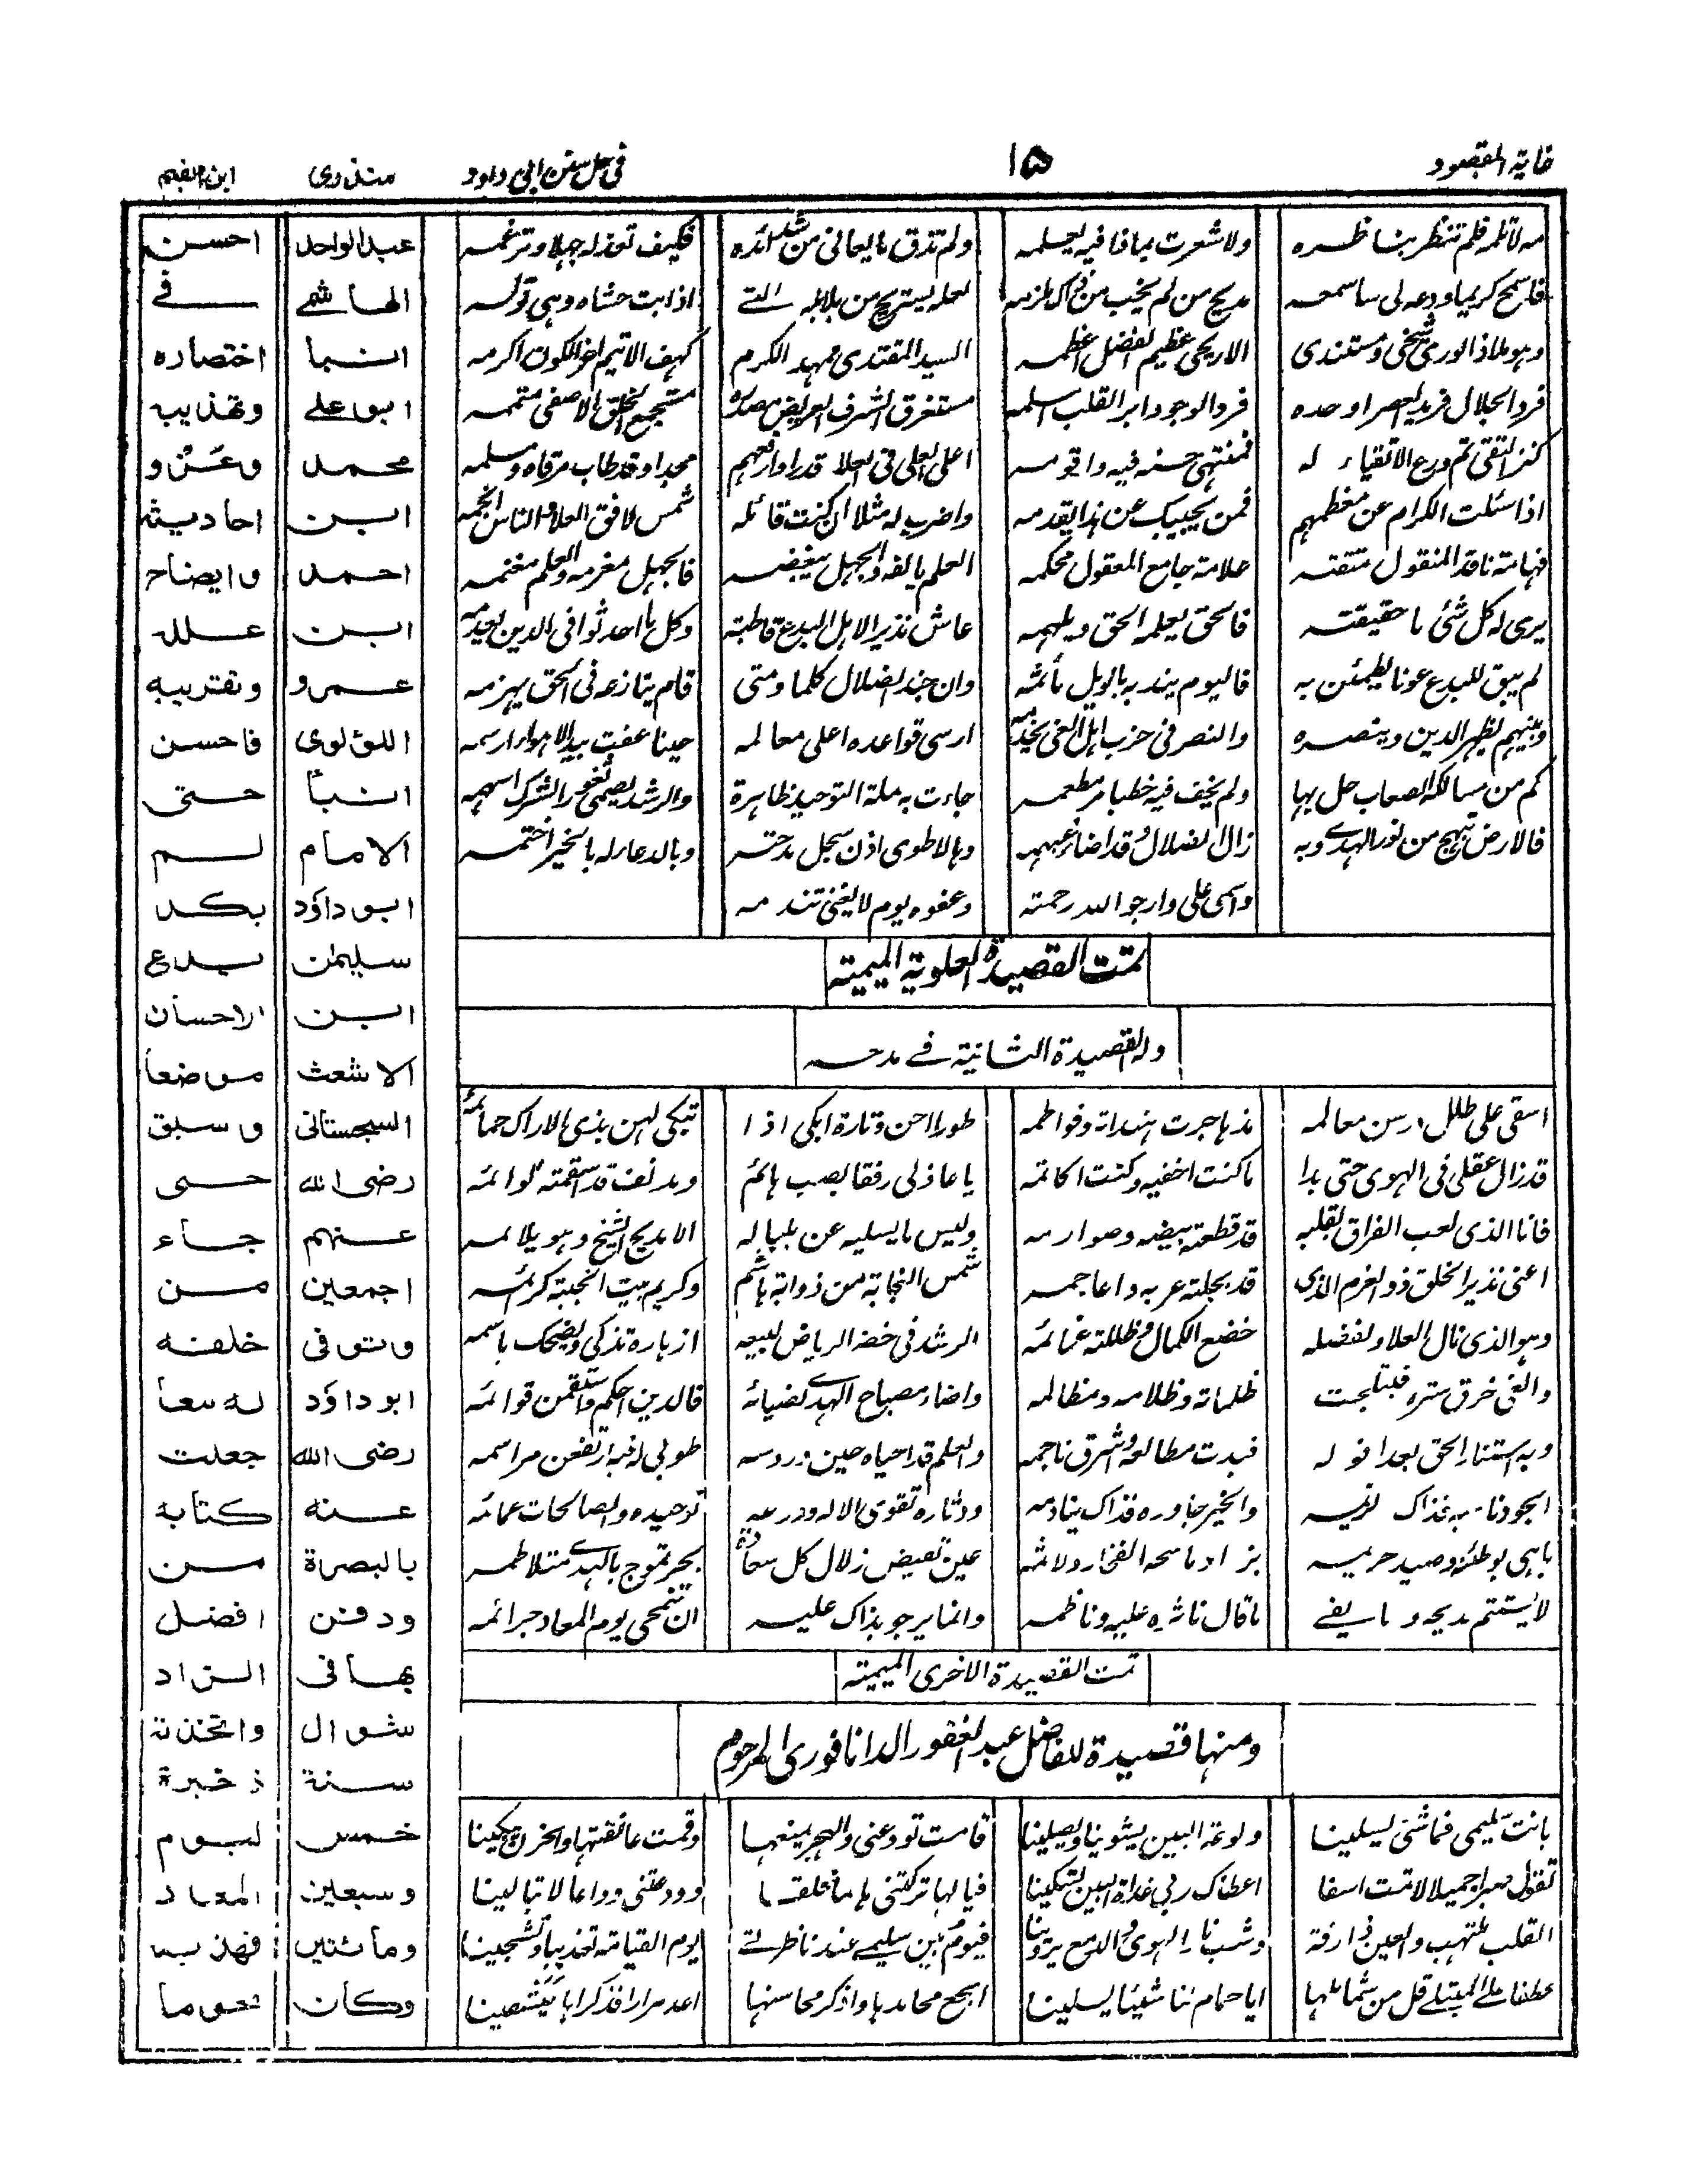 غاية المقصود ١٥ في حل سنن ابي داود منذري ابن القيم
مه لا تلمه فلم تنظر بناظره ولا شعرت بما فافيه يعلمه ولم تذق ما يعاني من شدائده فكيف تعذله جهلا وترغمه
فاسمح كريما ودعه لي سامعه مديح من لم يخب من ذاك ملزمه لعله يستريح من بلابله التي اذابت حشاه وهي تولمه
وهو ملاذ الورى شيخي ومستندي الاريحي عظيم الفضل اعظمه السيد المقتدى مهد الكرم كهف الاتيم اخو الكون اكرمه
فرد الجلال فريد العصر اوحده فرد الوجود ابر القلب اسلمه مستغرق الشرف العريض مصدره مستجمع الخلق الاصفى متممه
كنز التقى تم ورع الاتقياء له فمنتهى حسنه فيه واقومه اعلى العلى في العلا قدرا وارفعهم مجدا وقد طاب مرقاه وسلمه
اذا سئلت الكرام عن معظمهم فمن يجيبك عن هذا يقدمه واضرب له مثلا ان كنت قائله شمس لافق العلا والناس انجمه
فهامة ناقد المنقول متقنه علامة جامع المعقول محكمه العلم يالفه والجهل يبغضه فالجهل مغرمه والعلم مغنمه
يرى له كل شئ ما حقيقته فالحق يعلمه الحق ويلهمه عاش نذير الاهل البدع قاطبة وكل ما احدثوا في الدين يعدمه
لم يبق للبدع عونا يطمئن به فاليوم يندبه بالويل مأتمه وان جند الضلال كلما ومتى قام ينازعه في الحق يهزمه
وبينهم يظهر الدين وينصره والنصر في حزب اهل الغي يخدمه ارسى قواعده اعلى معالمه حينا عفت بيد الاهواء ارسمه
كم من مسالكه الصعاب حل بها ولم يخف فيه خطبا مر مطعمه جاءت به ملة التوحيد ظاهرة والرشد يصمي ثغور الشرك اسهمه
فالارض تبهج من نور الهدى وبه زال الضلال قد اضا غيهبه وها لا طوى اذن سجل مدحته وبالدعاء له بالخير اختمه
واسمي علي وارجو الله رحمته وعفوه يوم لا يغني تندمه
تمت القصيدة العلوية الميمية
وله القصيدة الثانية في مدحه
اسقى على طلل درسن معالمه مذ هاجرت هنداته وفواطمه طورا احن وتارة ابكي اذا تبكي لهن بذي الاراك حمائمه
قد زال عقلي في الهوى حتى بدا ما كنت اخفيه وكنت اكاتمه يا عاذلي رفقا بصب هائم ومدنف قد اسقمته لوائمه
فانا الذي لعب الفراق بقلبه قد قطعته بيضه وصوارمه وليس ما يسليه عن بلباله الا مديح الشيخ وهو يلائمه
اعني نذير الخلق ذو العزم الذي قد بجلته عربه واعاجمه شمس النجابة من ذوابة هاشم وكريم بيت انجبته كرائمه
وهو الذي نال العلا وبفضله خضع الكمال وظللته غمائمه الرشد في خضر الرياض لبيعه ازهاره تذكى ويضحك باسمه
والغي خرق ستره فتبلجت ظلماته وظلامه ومظالمه واضاء مصباح الهدى بضيائه فالدين احكم واستقمن قوائمه
وبه استنار الحق بعد افوله فبدت مطالعه واشرق ناجمه والعلم قد احياه حين دروسه طوبى له فبه ارتفعن مراسمه
الجود نادمه فذاك نديمه والخير جاوره فذاك ينادمه ودثاره تقوى الاله ودرعه توحيده والصالحات عمائمه
عين تفيض زلال كل سعادة بحر تموج بالهدى متلاطمه
لا يستتم مديحه وما يفي ما قال ناثره عليه وناظمه وانما يرجو بذاك عليه ان تنمحي يوم المعاد جرائمه
تمت القصيدة الاخرى الميمية
ومنها قصيدة للفاضل عبد الغفور الدانافوري المرحوم
بانت سليمى فما شئ يسلينا ولوعة البين يشوينا ويصلينا قامت تودعني والهجر يمنعها وقمت عانقتها والحزن يبكينا
تقول صبرا جميلا لا تمت اسفا اعطاك ربي غداة البين تسكينا فيا لها تركتني ها هنا قلقا وودعتني وداعا لا تبالينا
القلب ملتهب والعين ذارفة وشب نار الهوى والدمع يروينا فيوم بين سليمى عند ناظرتي يوم القيامة تعذيبا وتشجينا
عطفا على المبتلى قل من شمائلها ايا حمام لنا شيئا يسلينا اسجع محامدها واذكر محاسنها اعد مرارا فذكراها
عبد الواحد
الهاشمي
انبأ
ابو علي
محمد
ابن
احمد
ابن
عمرو
اللؤلوي
انبأ
الامام
ابو داود
سليمن
ابن
الاشعث
السجستاني
رضى الله
عنهم
اجمعين
وتوفي
ابو داود
رضى الله
عنه
بالبصرة
ودفن
بها في
شوال
سنة
خمس
وسبعين
ومائتين
وكان
احسن
في
اختصاره
وتهذيبه
وعزو
احاديثه
وايضاح
علله
وتقريبه
فاحسن
حتى
لم
يكد
يدع
الاحسان
موضعا
وسبق
حتى
جاء
من
خلفه
له تبعا
جعلت
كتابه
من
افضل
الزاد
واتخذته
ذخيرة
ليوم
المعاد
فهذبته
نحو ما